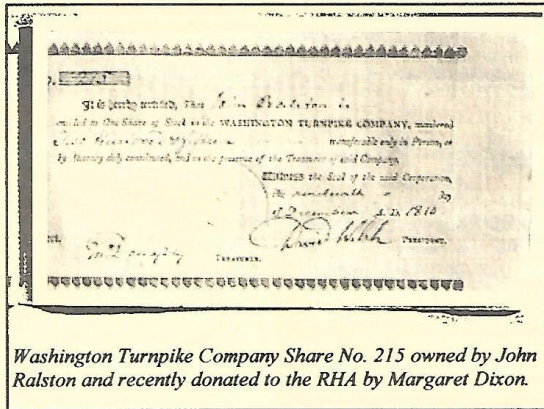 It is hereby certified, That John Ralston is
entitled to One Share of Stock in the WASHINGTON TURNPIKE COMPANY, numbered
transferable only in Person, or
by Attorney duly constituted, and in the presence of the Treasurer of said Company.
WITNESS the Seal of the said Corporation,
the nineteenth day
of December A. D. 1810
David Welsh PRESIDENT.
TREASURER.
Washington Turnpike Company Share No. 215 owned by John
Ralston and recently donated to the RHA by Margaret Dixon.